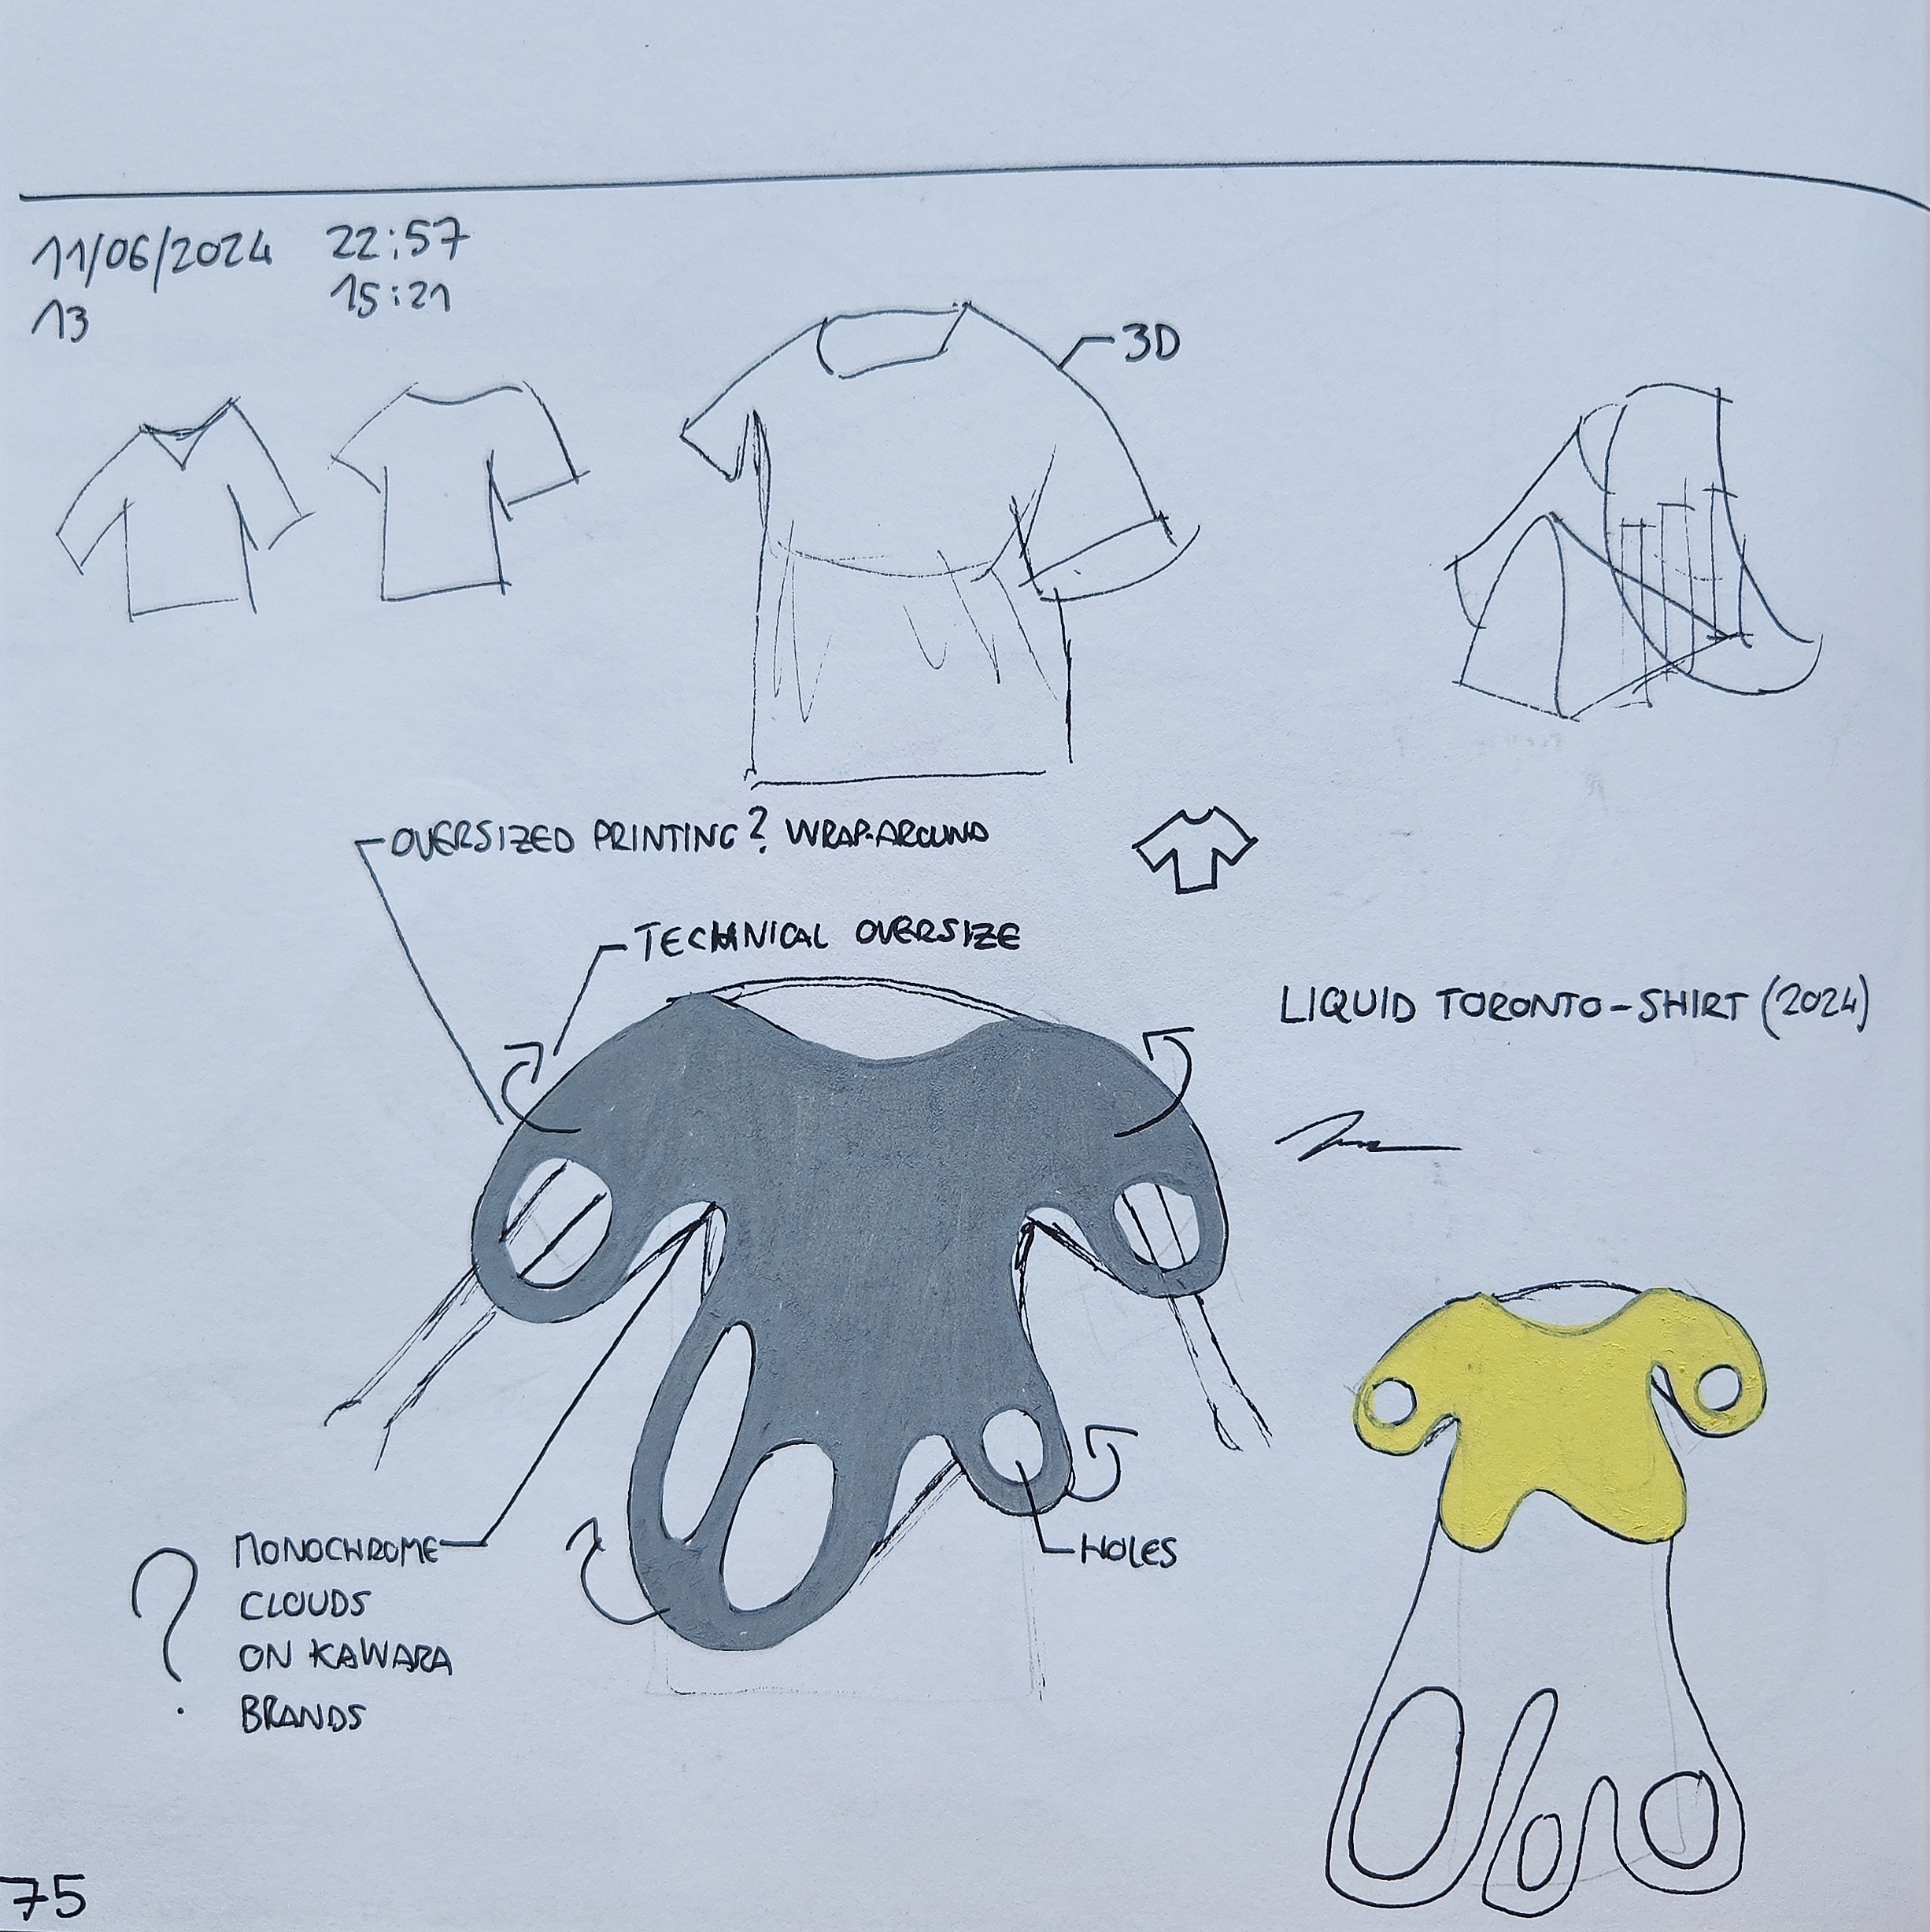 11/06/2024 22:57
13 15:21
3D
OVERSIZED PRINTING? WRAP-AROUND
TECHNICAL OVERSIZE
LIQUID TORONTO-SHIRT (2024)
MONOCHROME
HOLES
?
CLOUDS
ON KAWARA
BRANDS
75